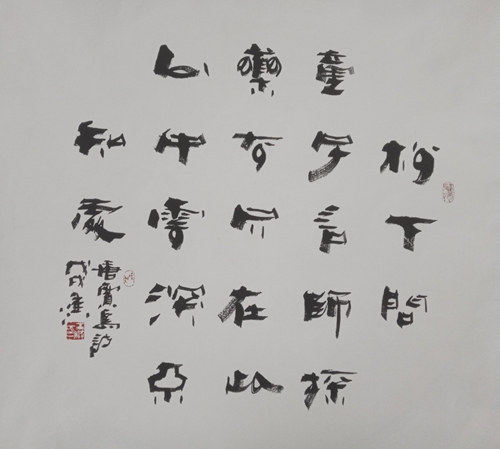 松下問
童子言師採
藥去只在此
山中雲深不
知處
唐賈島詩